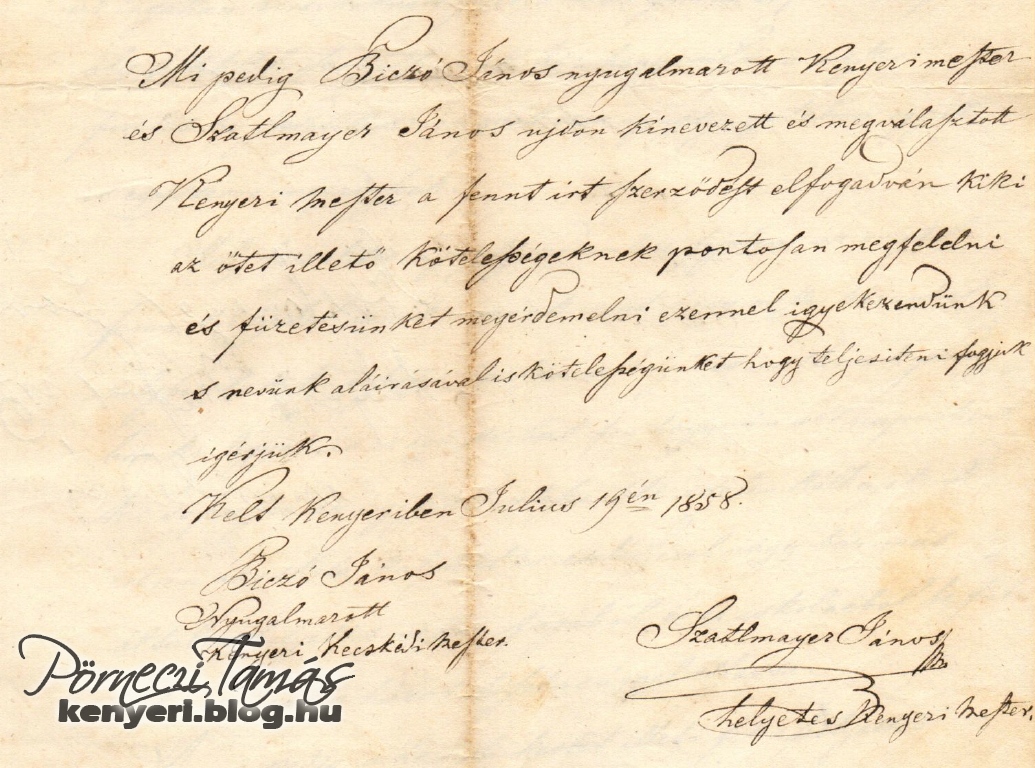 Mi pedig Biczó János nyugalmazott Kenyeri mester
és Szatlmayer János ujdon kinevezett és megválasztott
Kenyeri Mester a fennt írt szerződést elfogadván kiki
az őtet illető kötelességeknek pontosan megfelelni
és fizetésünket megérdemelni ezennel igyekezendünk
s nevünk aláirásával is kötelességünket hogy teljesiteni fogjuk
igérjük.
Kelt Kenyeriben Julius 19én 1858.
Biczó János
Nyugalmazott
Kenyeri Kecskédi Mester.
Szatlmayer János
helyetes Kenyeri Mester.
Pörneczi Tamás
kenyeri.blog.hu